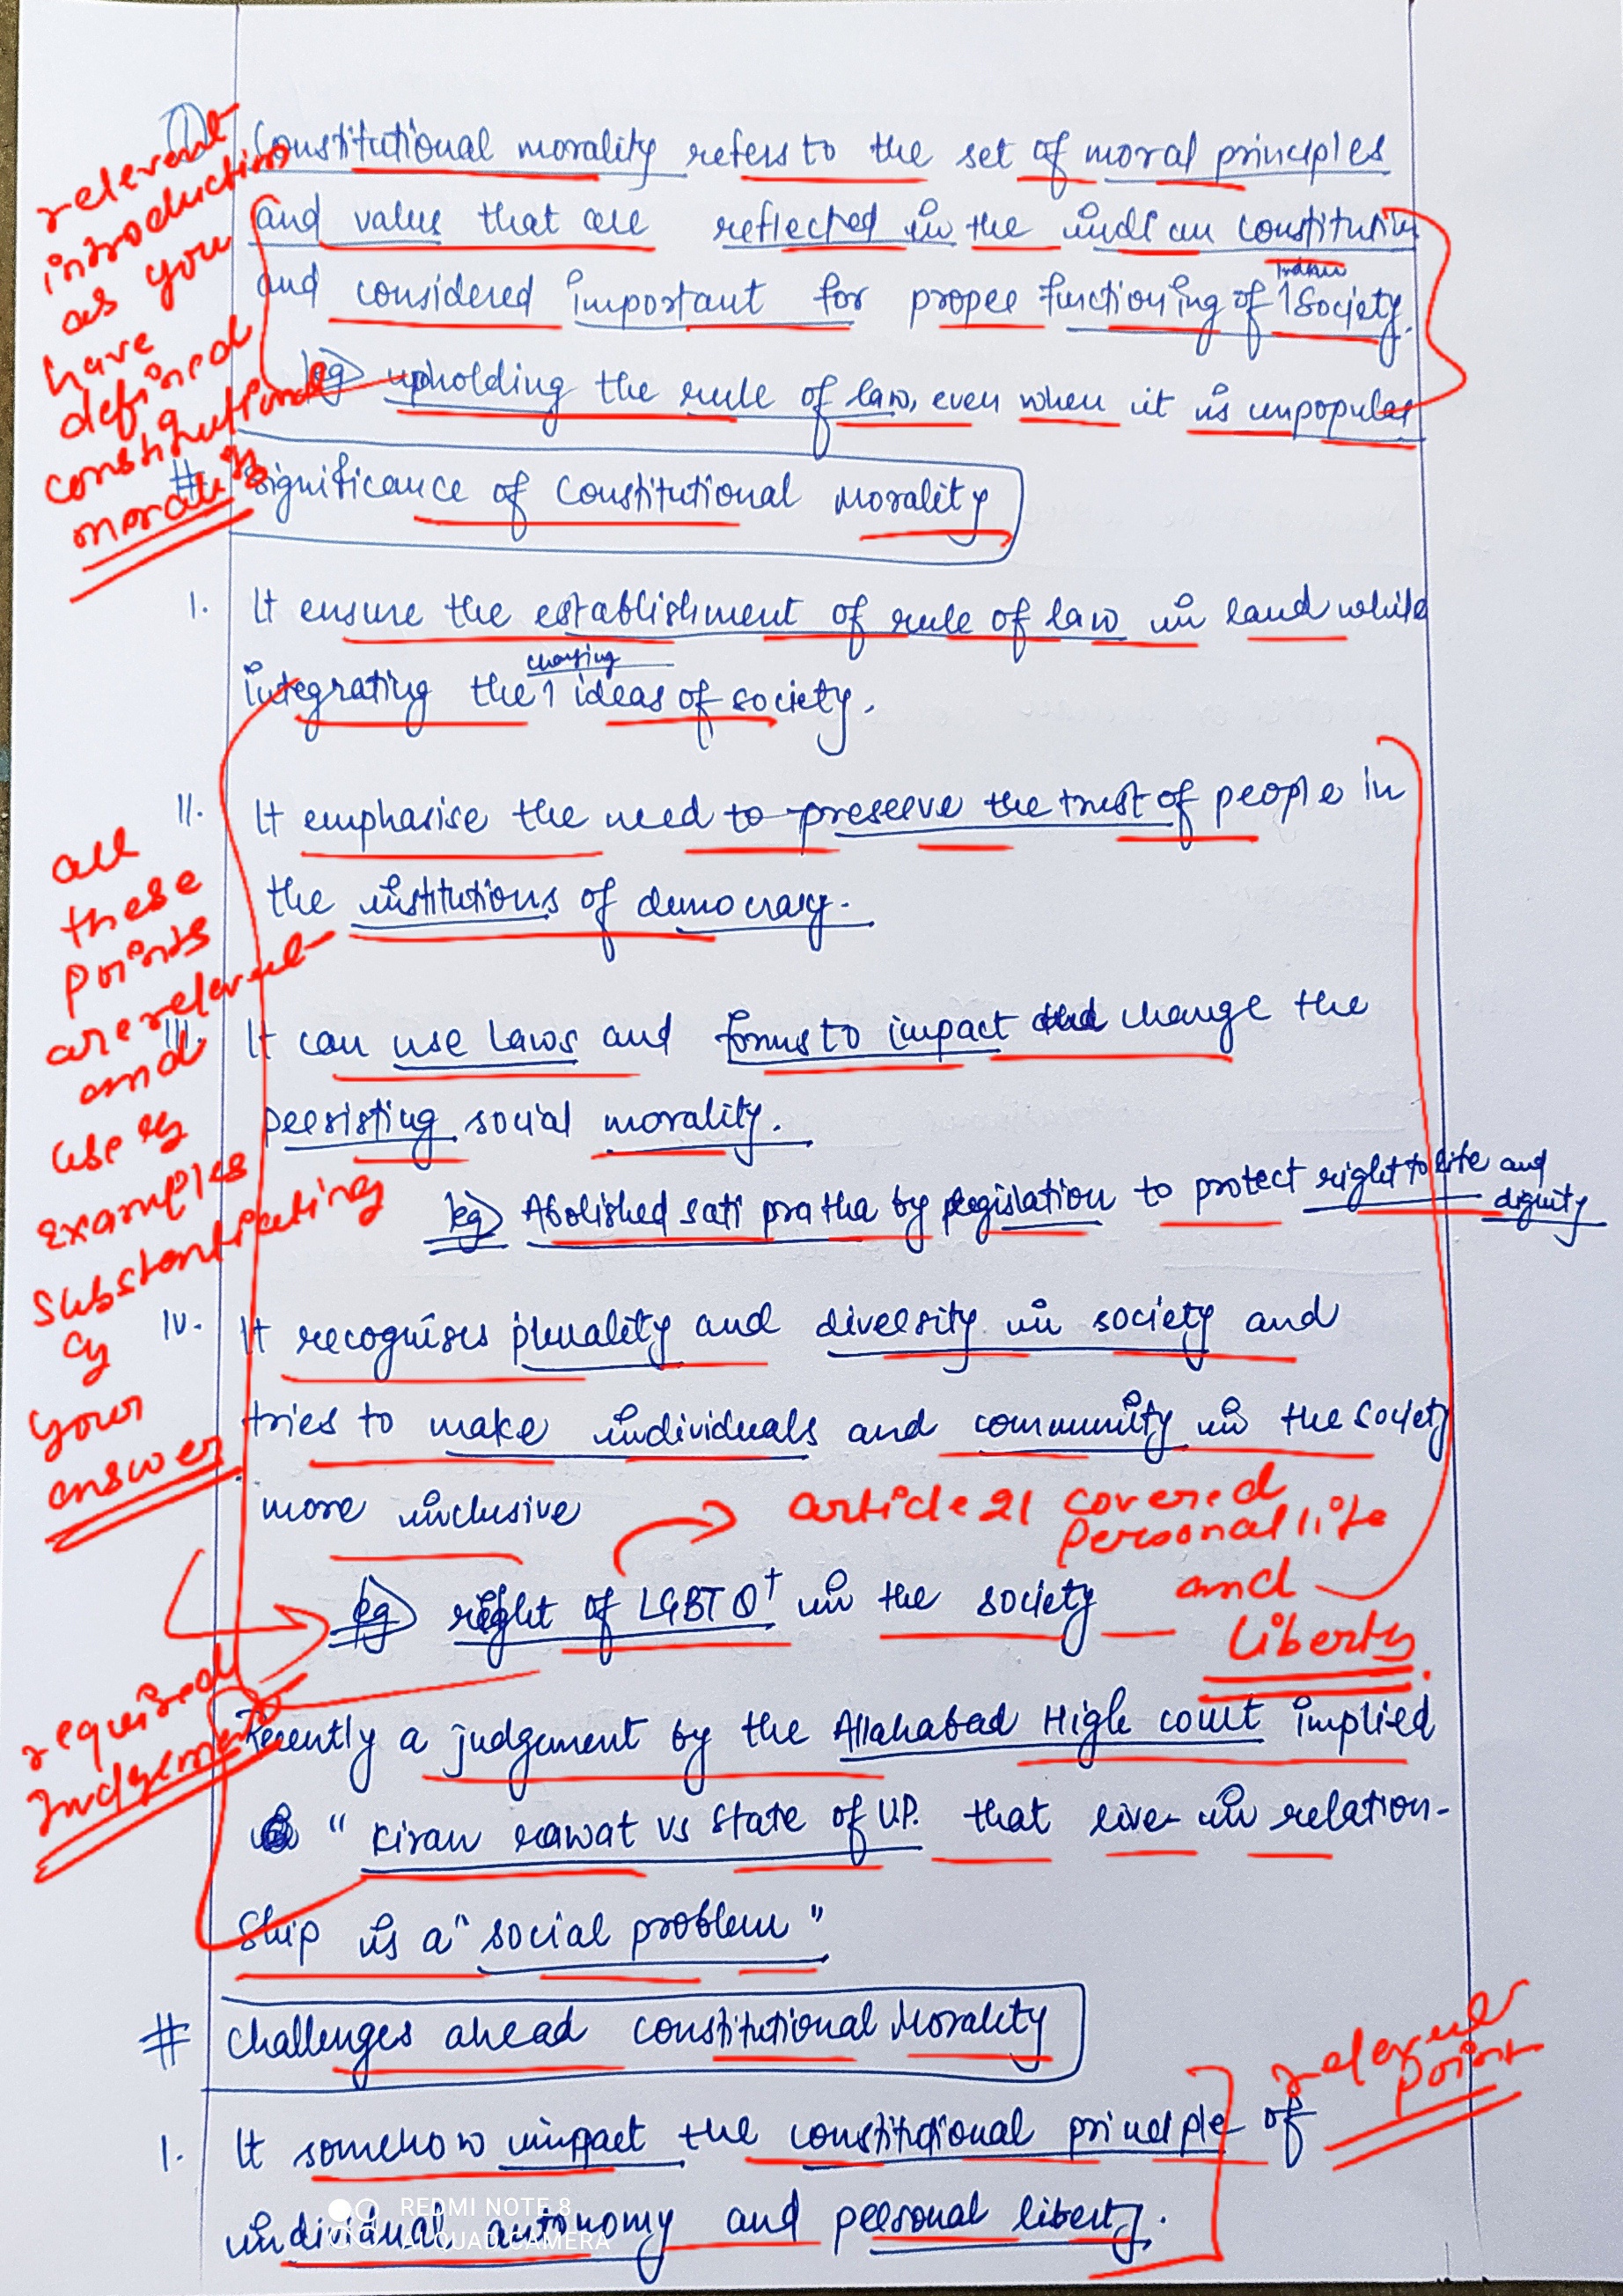 1) Constitutional morality refers to the set of moral principles
and values that are reflected in the indian constitution
and considered important for proper functioning of Indian Society.
eg) upholding the rule of law, even when it is unpopular
relevent
introduction
as you
have
defined
constitutional
morality
# Significance of Constitutional Morality
I. It ensure the establishment of rule of law in land while
integrating the changing ideas of society.
II. It emphasise the need to preserve the trust of people in
the institutions of democracy.
III. It can use laws and forms to impact and change the
persisting social morality.
eg) Abolished sati pratha by legislation to protect right to life and
dignity
all
these
points
are relevent
and
use of
examples
substantiating
your
answer
IV. It recognises plurality and diversity in society and
tries to make individuals and community in the society
more inclusive
article 21 covered
personal life
and
liberty.
eg) right of LGBTQ+ in the society
required
Judgement
Recently a judgement by the Allahabad High court implied
" Kiran rawat vs State of U.P. that live-in relation-
ship is a "social problem"
# Challenges ahead constitutional Morality
relevent
point
I. It somehow impact the constitutional principle of
individual autonomy and personal liberty.
REDMI NOTE 8
AI QUAD CAMERA